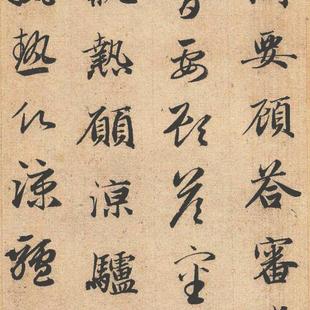 要顧答審
要顧答審
熱願涼驢
熱願涼驢